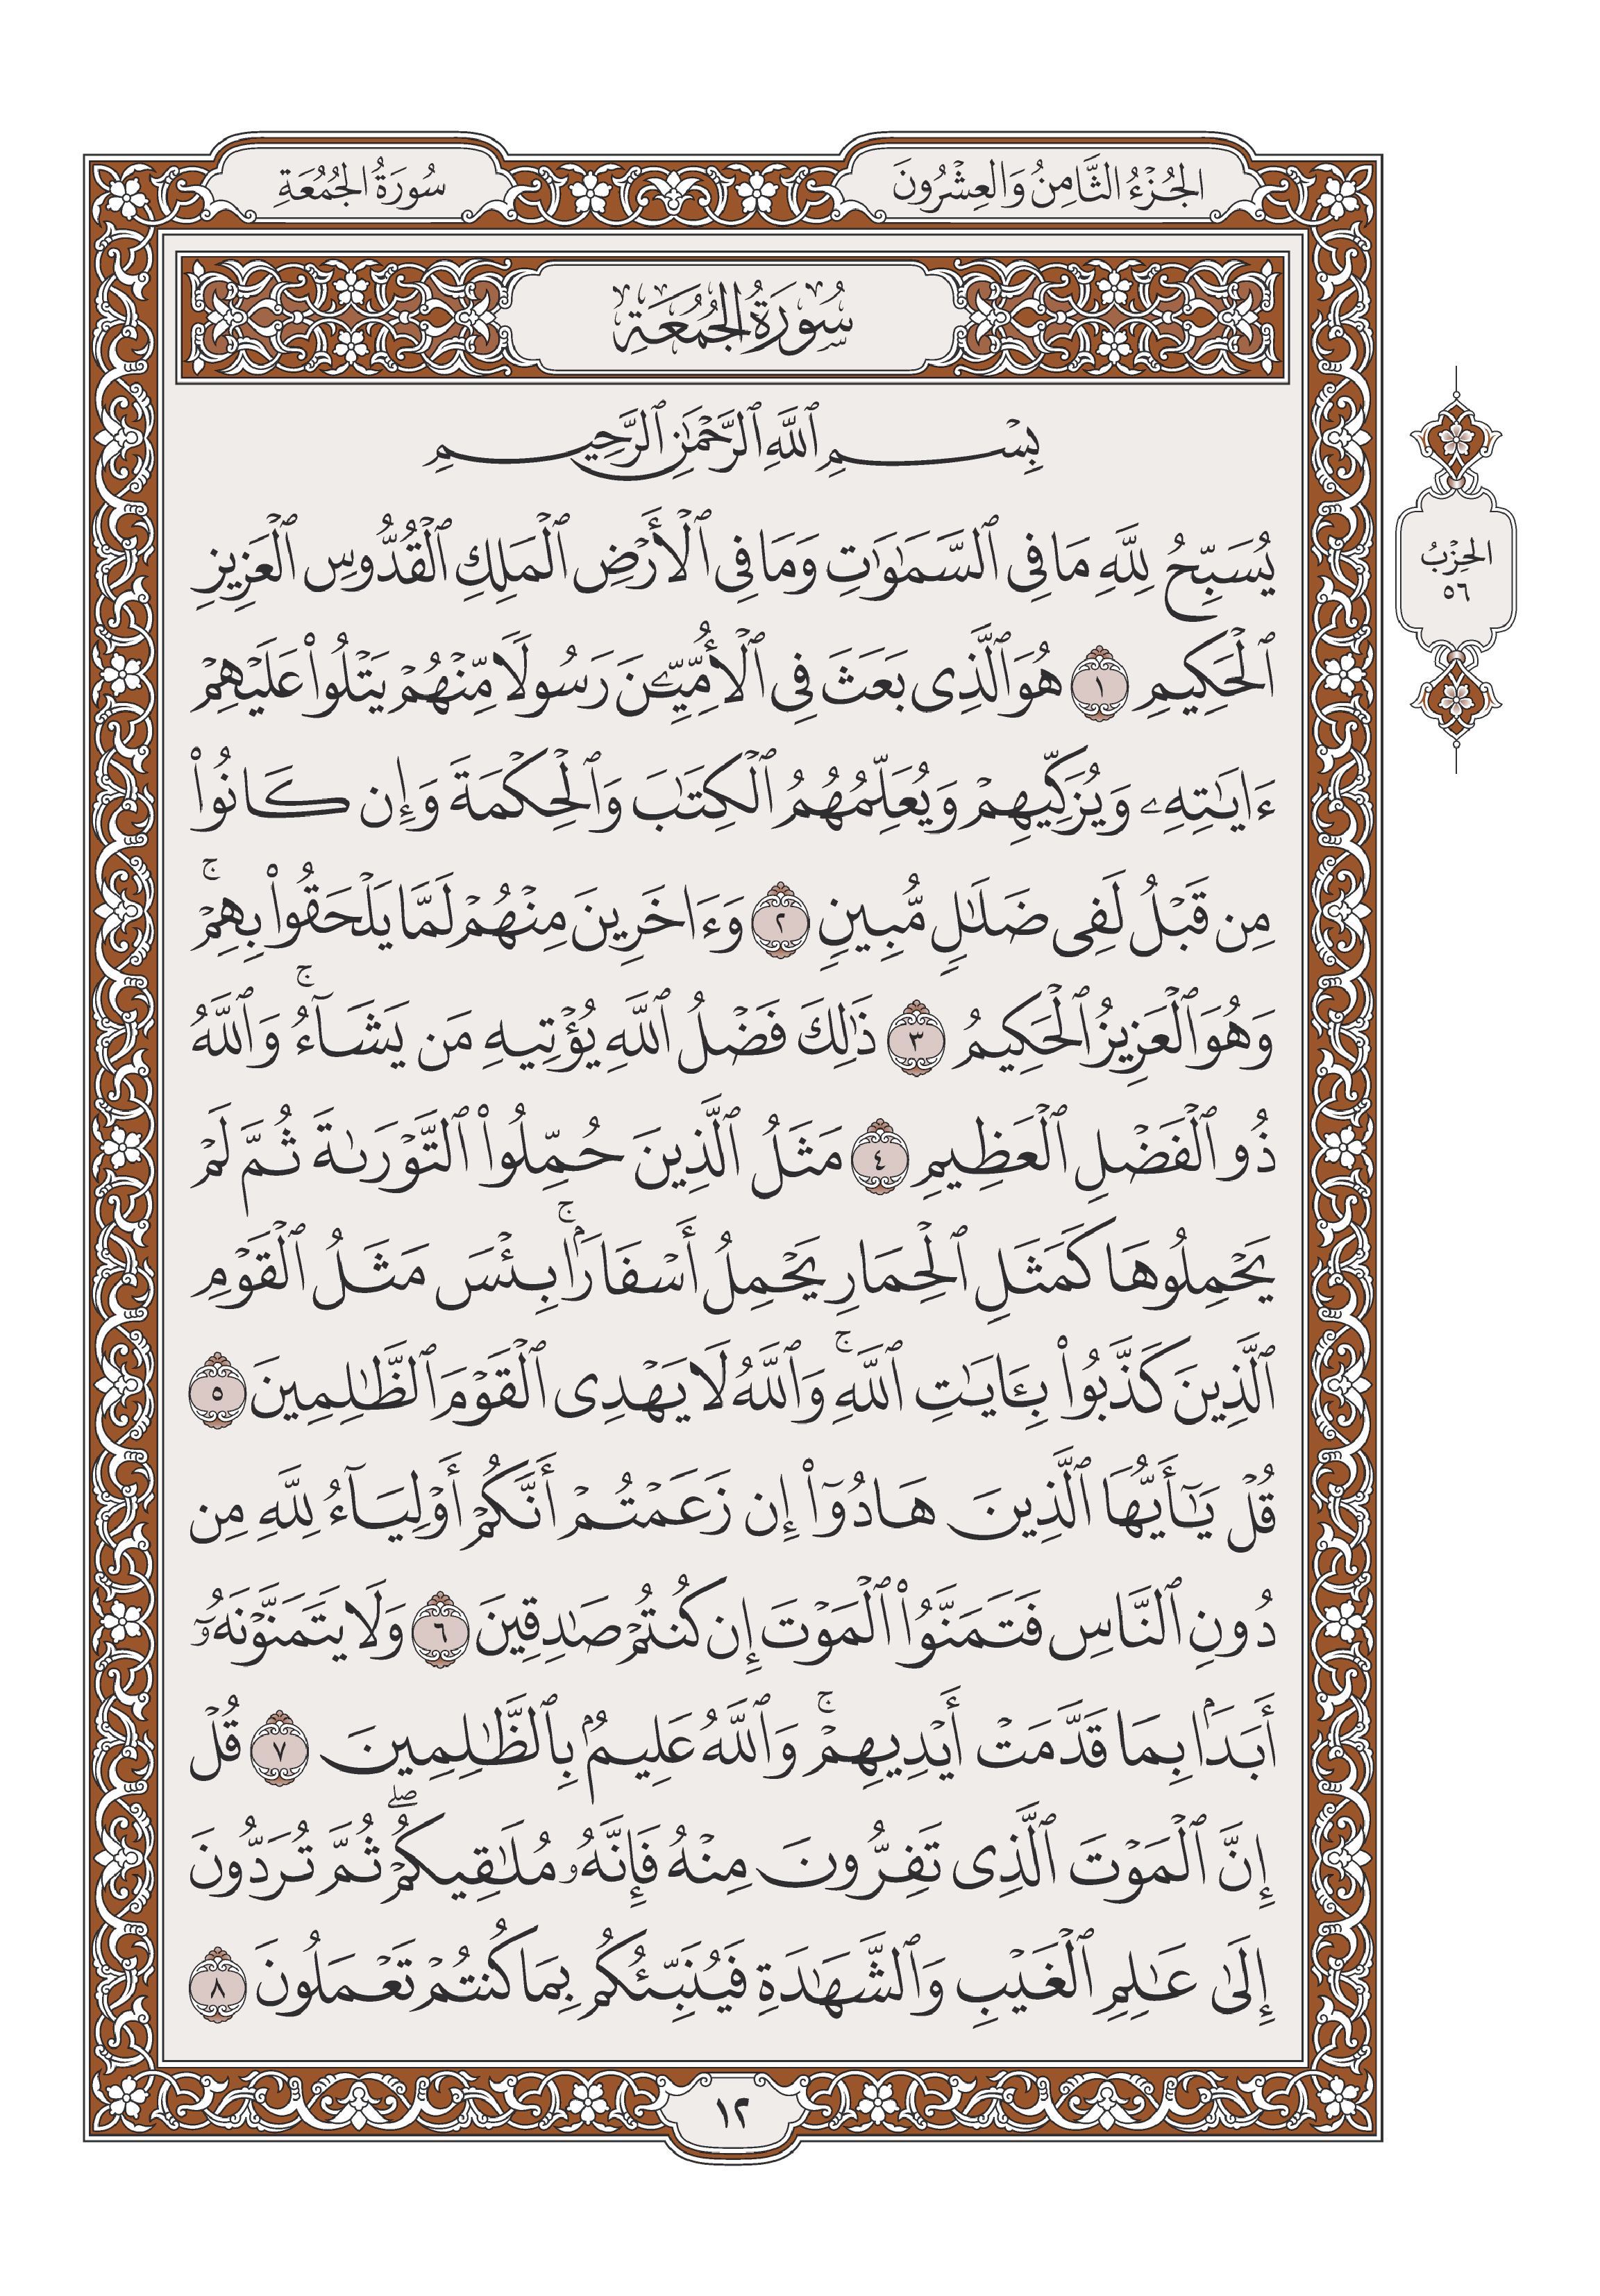 الجُزْءُ الثَّامِنُ وَالعِشْرُونَ
سُورَةُ الجُمُعَةِ
سُورَةُ الجُمُعَةِ
بِسْمِ ٱللَّهِ ٱلرَّحْمَٰنِ ٱلرَّحِيمِ
يُسَبِّحُ لِلَّهِ مَا فِى ٱلسَّمَٰوَٰتِ وَمَا فِى ٱلْأَرْضِ ٱلْمَلِكِ ٱلْقُدُّوسِ ٱلْعَزِيزِ
ٱلْحَكِيمِ ١ هُوَ ٱلَّذِى بَعَثَ فِى ٱلْأُمِّيِّـۧنَ رَسُولًا مِّنْهُمْ يَتْلُوا۟ عَلَيْهِمْ
ءَايَٰتِهِۦ وَيُزَكِّيهِمْ وَيُعَلِّمُهُمُ ٱلْكِتَٰبَ وَٱلْحِكْمَةَ وَإِن كَانُوا۟
مِن قَبْلُ لَفِى ضَلَٰلٍ مُّبِينٍ ٢ وَءَاخَرِينَ مِنْهُمْ لَمَّا يَلْحَقُوا۟ بِهِمْ ۚ
وَهُوَ ٱلْعَزِيزُ ٱلْحَكِيمُ ٣ ذَٰلِكَ فَضْلُ ٱللَّهِ يُؤْتِيهِ مَن يَشَآءُ ۚ وَٱللَّهُ
ذُو ٱلْفَضْلِ ٱلْعَظِيمِ ٤ مَثَلُ ٱلَّذِينَ حُمِّلُوا۟ ٱلتَّوْرَىٰةَ ثُمَّ لَمْ
يَحْمِلُوهَا كَمَثَلِ ٱلْحِمَارِ يَحْمِلُ أَسْفَارًۢا ۚ بِئْسَ مَثَلُ ٱلْقَوْمِ
ٱلَّذِينَ كَذَّبُوا۟ بِـَٔايَٰتِ ٱللَّهِ ۚ وَٱللَّهُ لَا يَهْدِى ٱلْقَوْمَ ٱلظَّٰلِمِينَ ٥
قُلْ يَٰٓأَيُّهَا ٱلَّذِينَ هَادُوٓا۟ إِن زَعَمْتُمْ أَنَّكُمْ أَوْلِيَآءُ لِلَّهِ مِن
دُونِ ٱلنَّاسِ فَتَمَنَّوُا۟ ٱلْمَوْتَ إِن كُنتُمْ صَٰدِقِينَ ٦ وَلَا يَتَمَنَّوْنَهُۥٓ
أَبَدًۢا بِمَا قَدَّمَتْ أَيْدِيهِمْ ۚ وَٱللَّهُ عَلِيمٌۢ بِٱلظَّٰلِمِينَ ٧ قُلْ
إِنَّ ٱلْمَوْتَ ٱلَّذِى تَفِرُّونَ مِنْهُ فَإِنَّهُۥ مُلَٰقِيكُمْ ۖ ثُمَّ تُرَدُّونَ
إِلَىٰ عَٰلِمِ ٱلْغَيْبِ وَٱلشَّهَٰدَةِ فَيُنَبِّئُكُم بِمَا كُنتُمْ تَعْمَلُونَ ٨
الحِزْبُ
٥٦
١٢